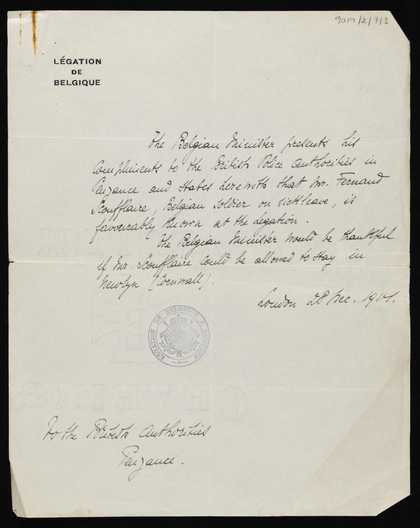 9am/2/7/2
LÉGATION
DE
BELGIQUE
The Belgian Minister presents his
compliments to the British Police Authorities in
Penzance and states herewith that Mr. Fernand
Scouflaire, Belgian soldier on sick leave, is
favourably known at the legation.
The Belgian Minister would be thankful
if Mr Scouflaire could be allowed to stay in
Newlyn (Cornwall).
London 28 Dec.
To the British Authorities
Penzance.